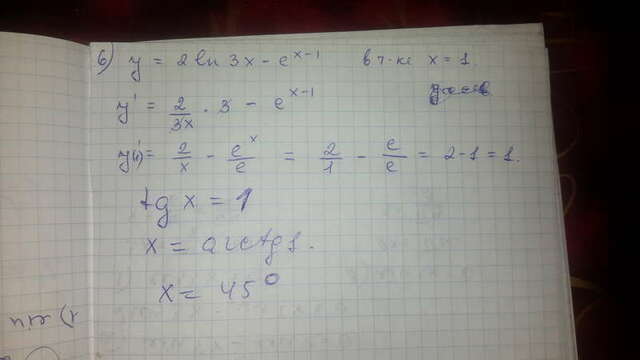 6) y = 2 ln 3x - e^(x-1) в т-ке x = 1.
y' = 2/3x · 3 - e^(x-1)
y'(1) = 2/x - e^x/e = 2/1 - e/e = 2-1 = 1.
tg x = 1
x = arctg 1.
x = 45°